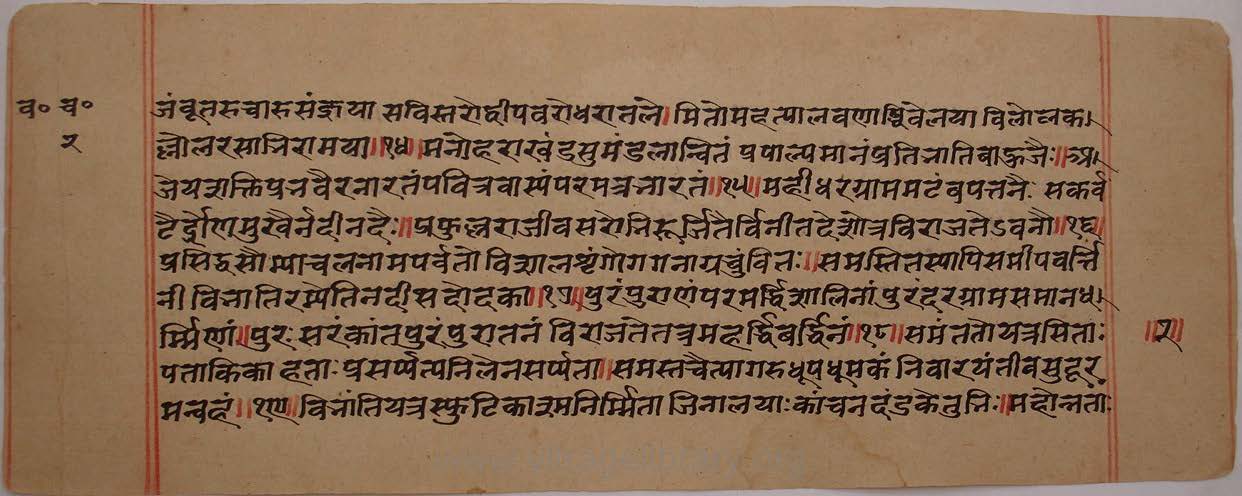 व० च०
२
जंबूतरुचारुसंज्ञया सविस्तरोद्वीपवरोधरातले। मितोमहत्यालवणाब्धिवेलया विलोलक।
ल्लोलरसाभिरामया॥१४॥मनोहराखंडसुमंडलान्वितं प्रपाल्यमानंप्रतिजातिबाहुजैः॥अप्रा।
जेयशक्तिप्रनवैरनारतंपवित्रवास्यंपरमत्रभारतं॥१५॥महीधरग्राममटंबपत्तनैः सकर्व
टैर्द्रोणमुखैर्नदीनदैः॥प्रफुल्लराजीवसरोभिरूर्जितैर्विनीतदेशोत्रविराजतेऽवनौ॥१६॥
प्रसिद्धसौम्याचलनामपर्वतो विशालशृंगोगगनाग्रचुंबितः॥समस्तितस्यापिसमीपवर्त्ति
नी विभातिरम्येतिनदीसदोदका॥१७॥पुरंपुराणंपरमर्द्धिशालिनांपुरंदरग्रामसमानध।
र्म्मिणां॥पुरःसरंकांतपुरंपुरातनं विराजतेतत्रमहर्द्धिवर्द्धिनां॥१८॥समंततोयत्रसिताः
॥२॥
पताकिका हताः प्रसर्प्पत्यनिलेनसर्प्पता॥समस्तचैत्यागरुधूपधूम्रकं निवारयंतीवसुदूर
मन्वहं॥१९॥विभांतियत्रस्फुटिकाश्मनिर्म्मिता जिनालयाःकांचनदंडकेतुभिः॥महोन्नताः